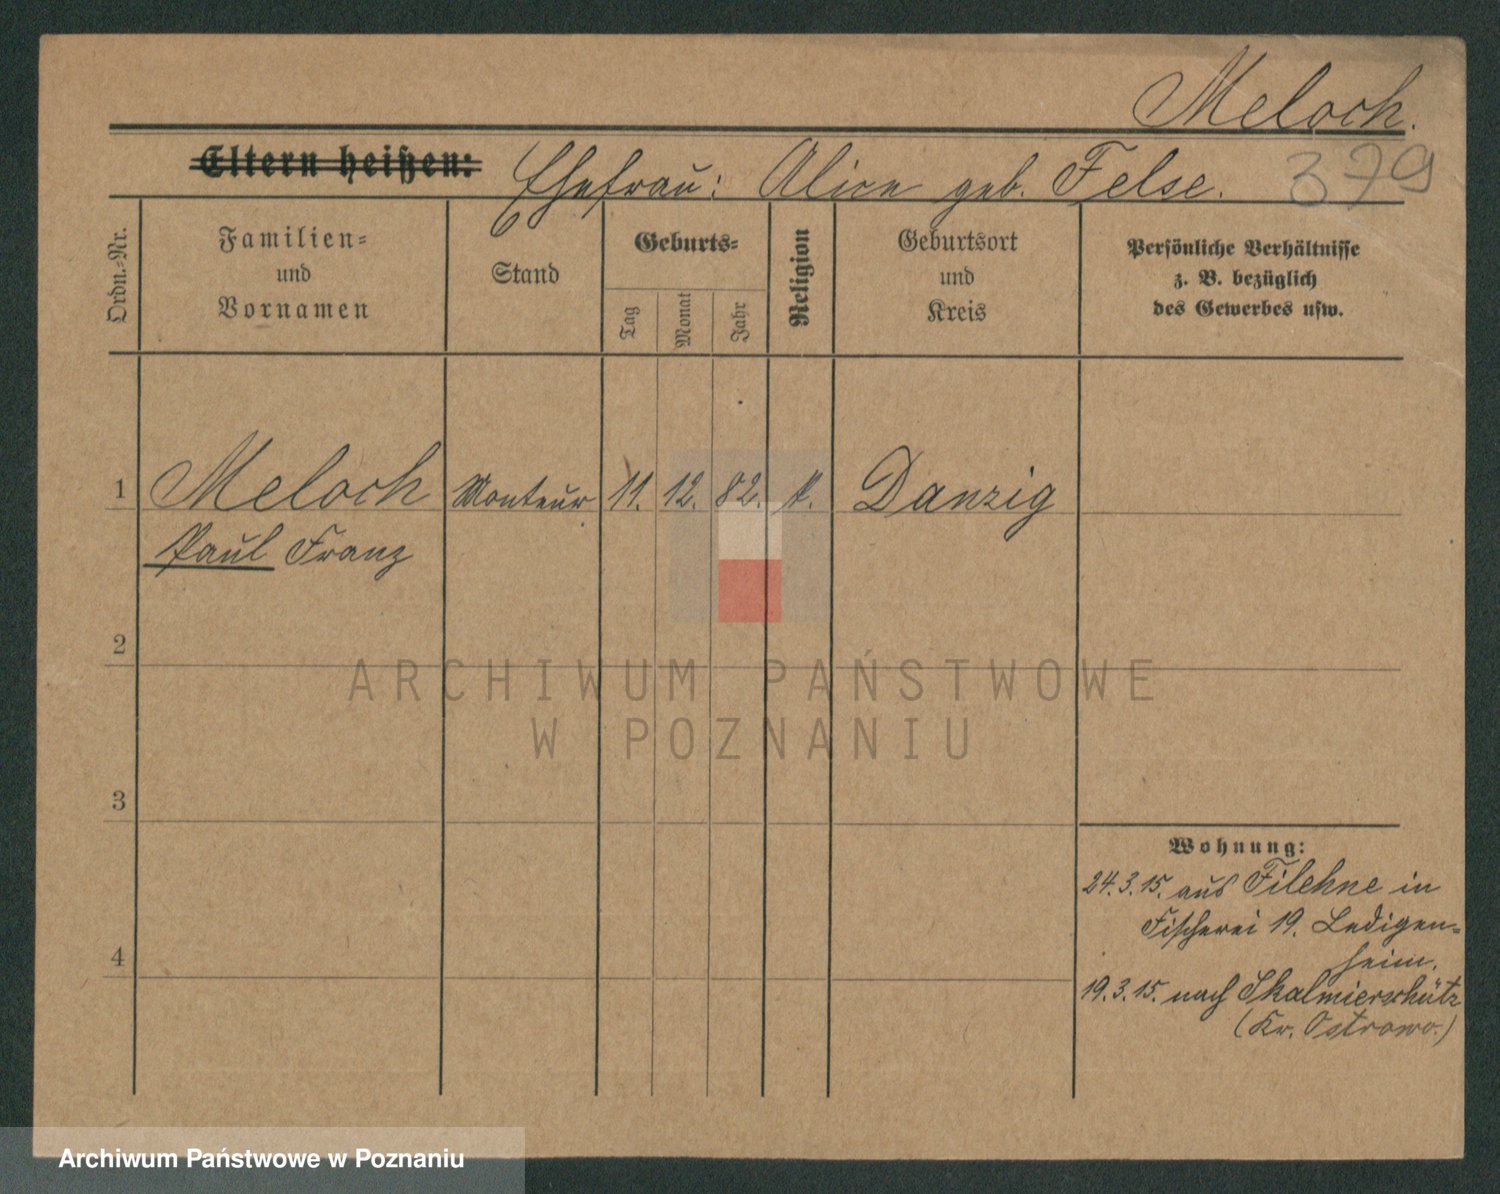 Meloch.
379
Eltern heißen: Ehefrau: Alice geb. Felse.
Ordn.-Nr.
Familien-
und
Vornamen
Stand
Geburts-
Tag
Monat
Jahr
Religion
Geburtsort
und
Kreis
Persönliche Verhältnisse
z. B. bezüglich
des Gewerbes usw.
1 Meloch Monteur 11. 12. 82. k. Danzig
Paul Franz
2
3
4
Wohnung:
24.3.15. aus Filehne in
Fischerei 19. Ledigen-
heim.
19.3.15. nach Skalmierschütz
(Kr. Ostrowo.)
ARCHIWUM PAŃSTWOWE
W POZNANIU
Archiwum Państwowe w Poznaniu